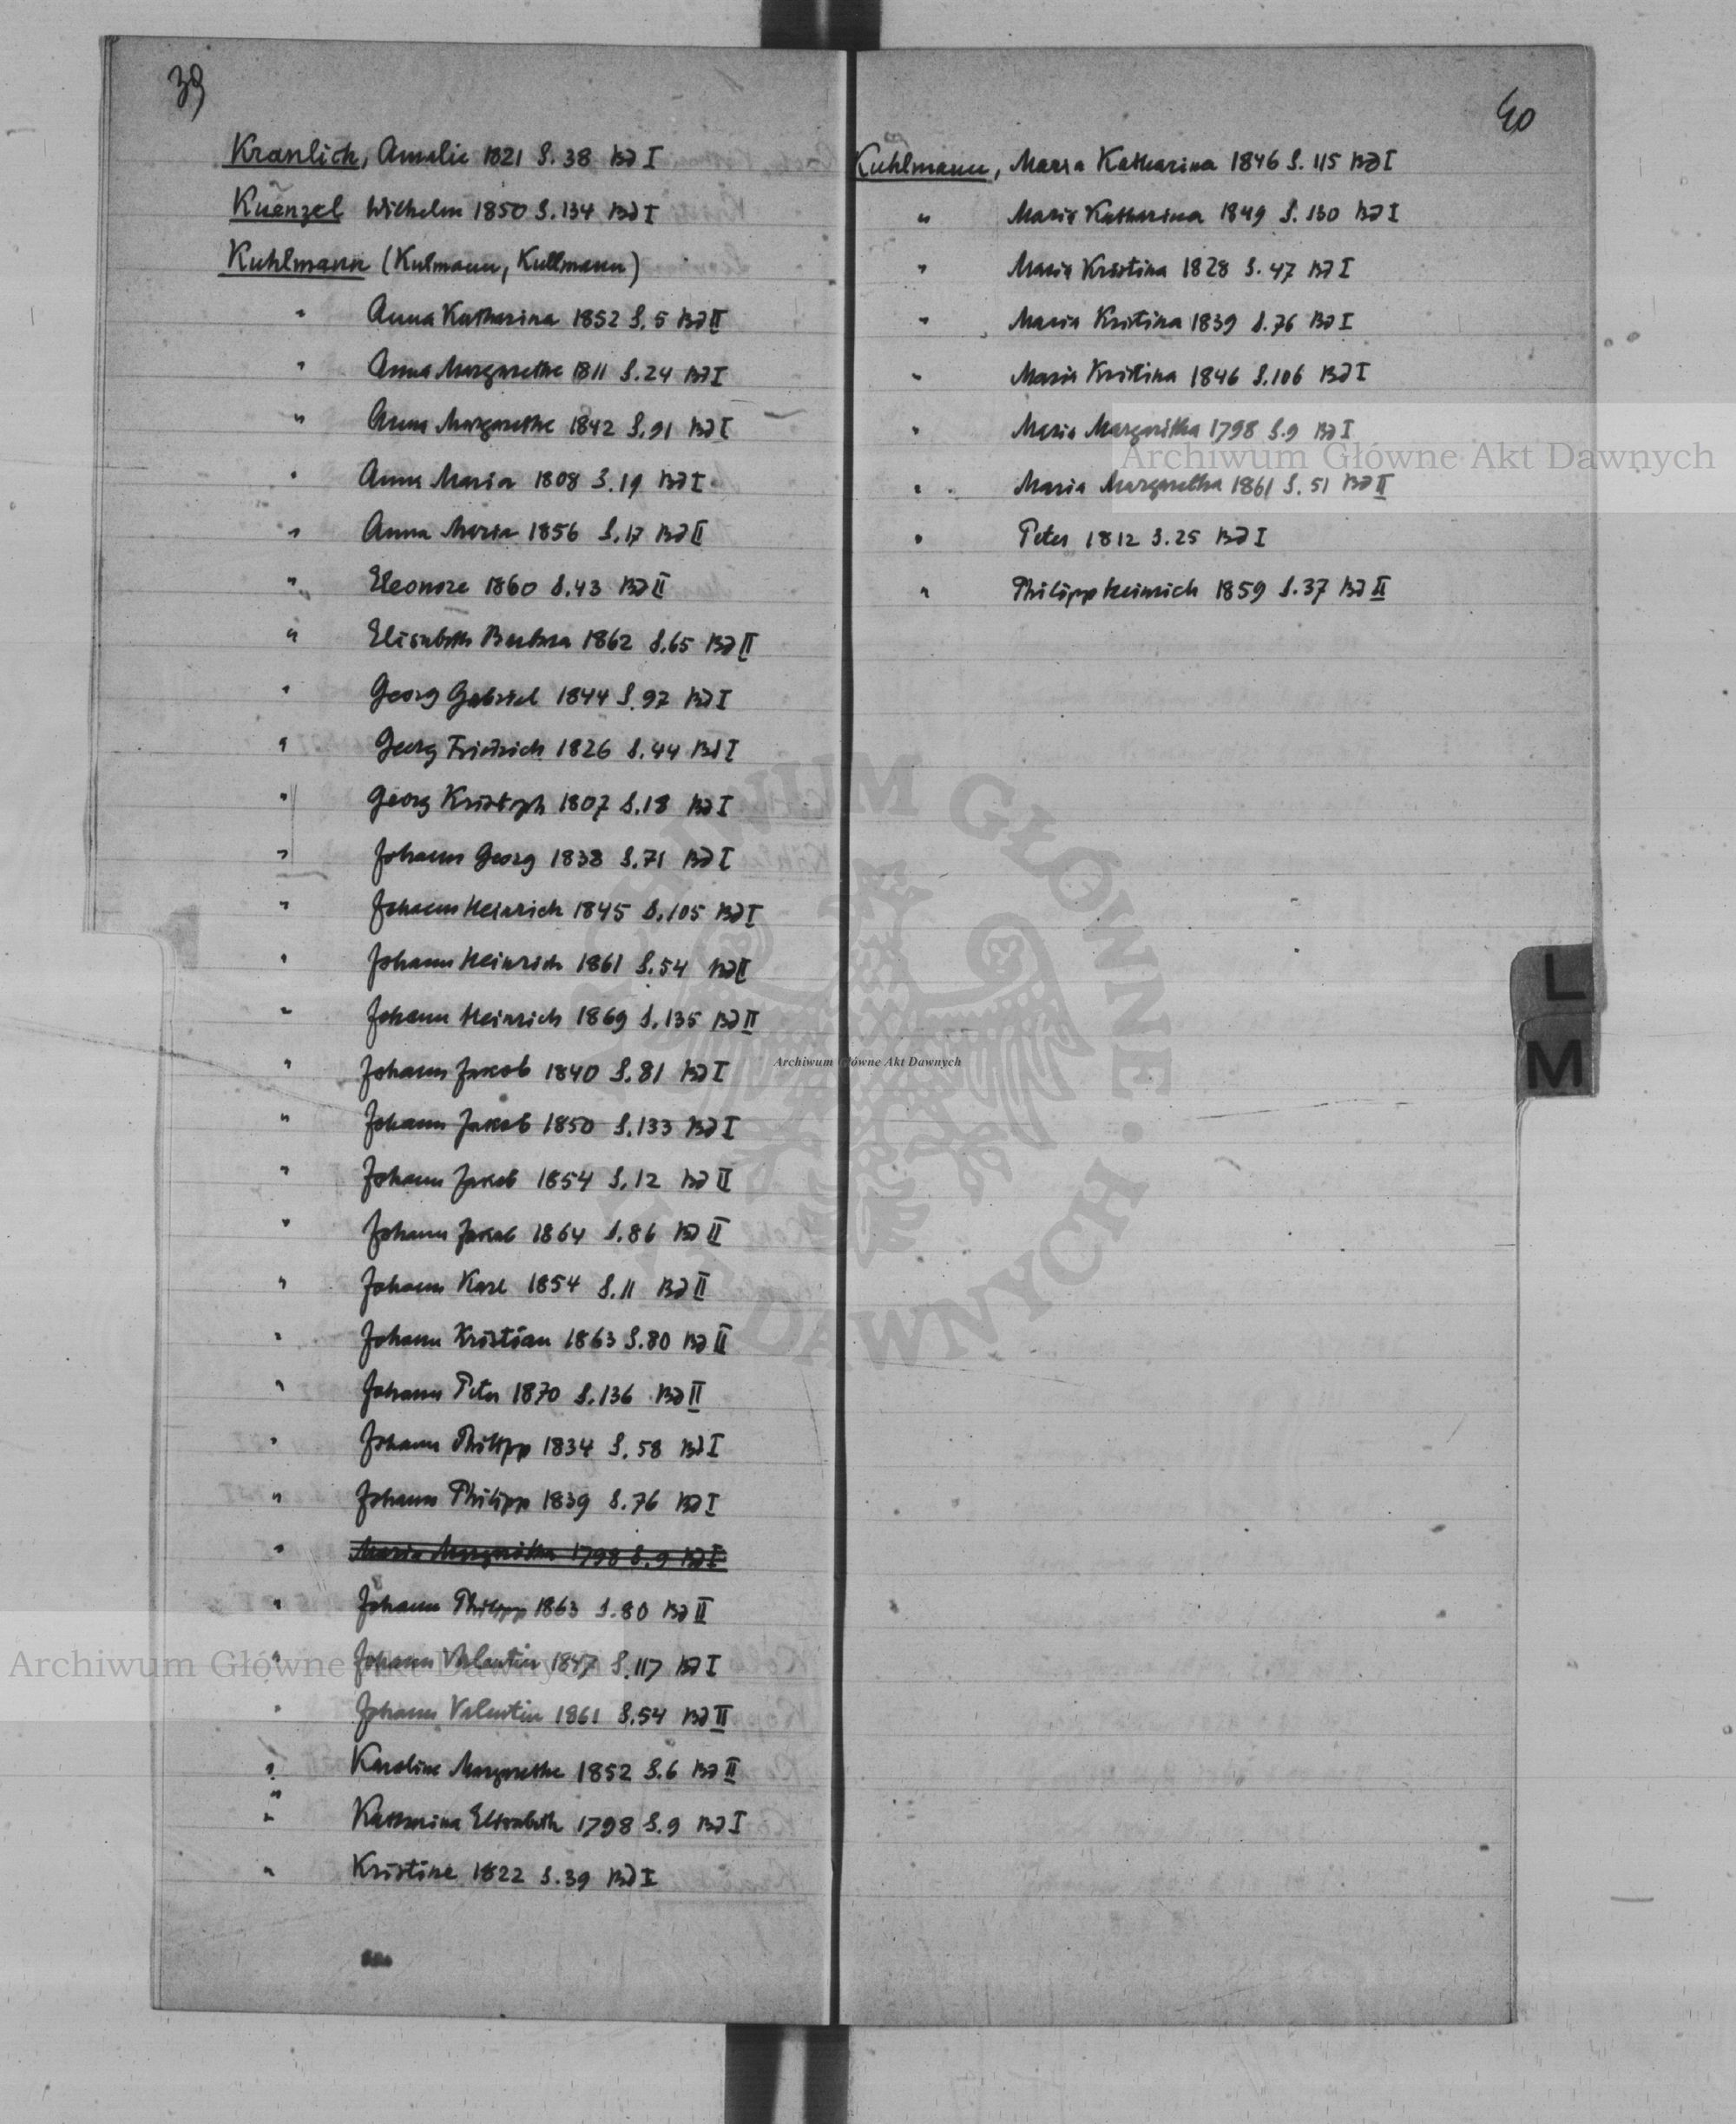 39
Kranlich, Amalie 1821 S. 38 Bd I
Kuenzel Wilhelm 1850 S. 134 Bd I
Kuhlmann (Kulmann, Kullmann)
" Anna Katharina 1852 S. 5 Bd II
" Anna Margarethe 1811 S. 24 Bd I
" Anna Margarethe 1842 S. 91 Bd I
" Anna Maria 1808 S. 19 Bd I
" Anna Maria 1856 S. 17 Bd II
" Eleonore 1860 S. 43 Bd II
" Elisabeth Barbara 1862 S. 65 Bd II
" Georg Gabriel 1844 S. 97 Bd I
" Georg Friedrich 1826 S. 44 Bd I
" Georg Kristoph 1807 S. 18 Bd I
" Johann Georg 1838 S. 71 Bd I
" Johann Heinrich 1845 S. 105 Bd I
" Johann Heinrich 1861 S. 54 Bd II
" Johann Heinrich 1869 S. 135 Bd II
" Johann Jakob 1840 S. 81 Bd I
" Johann Jakob 1850 S. 133 Bd I
" Johann Jakob 1854 S. 12 Bd II
" Johann Jakob 1864 S. 86 Bd II
" Johann Karl 1854 S. 11 Bd II
" Johann Kristian 1863 S. 80 Bd II
" Johann Peter 1870 S. 136 Bd II
" Johann Philipp 1834 S. 58 Bd I
" Johann Philipp 1839 S. 76 Bd I
" Maria Margaritha 1798 S. 9 Bd I
" Johann Philipp 1863 S. 80 Bd II
" Johann Valentin 1847 S. 117 Bd I
" Johann Valentin 1861 S. 54 Bd II
" Karoline Margarethe 1852 S. 6 Bd II
" Katharina Elisabeth 1798 S. 9 Bd I
" Kristine 1822 S. 39 Bd I
40
Kuhlmann, Maria Katharina 1846 S. 115 Bd I
" Maria Katharina 1849 S. 130 Bd I
" Maria Kristina 1828 S. 47 Bd I
" Maria Kristina 1839 S. 76 Bd I
" Maria Kristina 1846 S. 106 Bd I
" Maria Margaritha 1798 S. 9 Bd I
" Maria Margaretha 1861 S. 51 Bd II
" Peter 1812 S. 25 Bd I
" Philipp Heinrich 1859 S. 37 Bd II
L
M
Archiwum Główne Akt Dawnych
Archiwum Główne Akt Dawnych
Archiwum Główne Akt Dawnych
ARCHIWUM GŁÓWNE AKT DAWNYCH